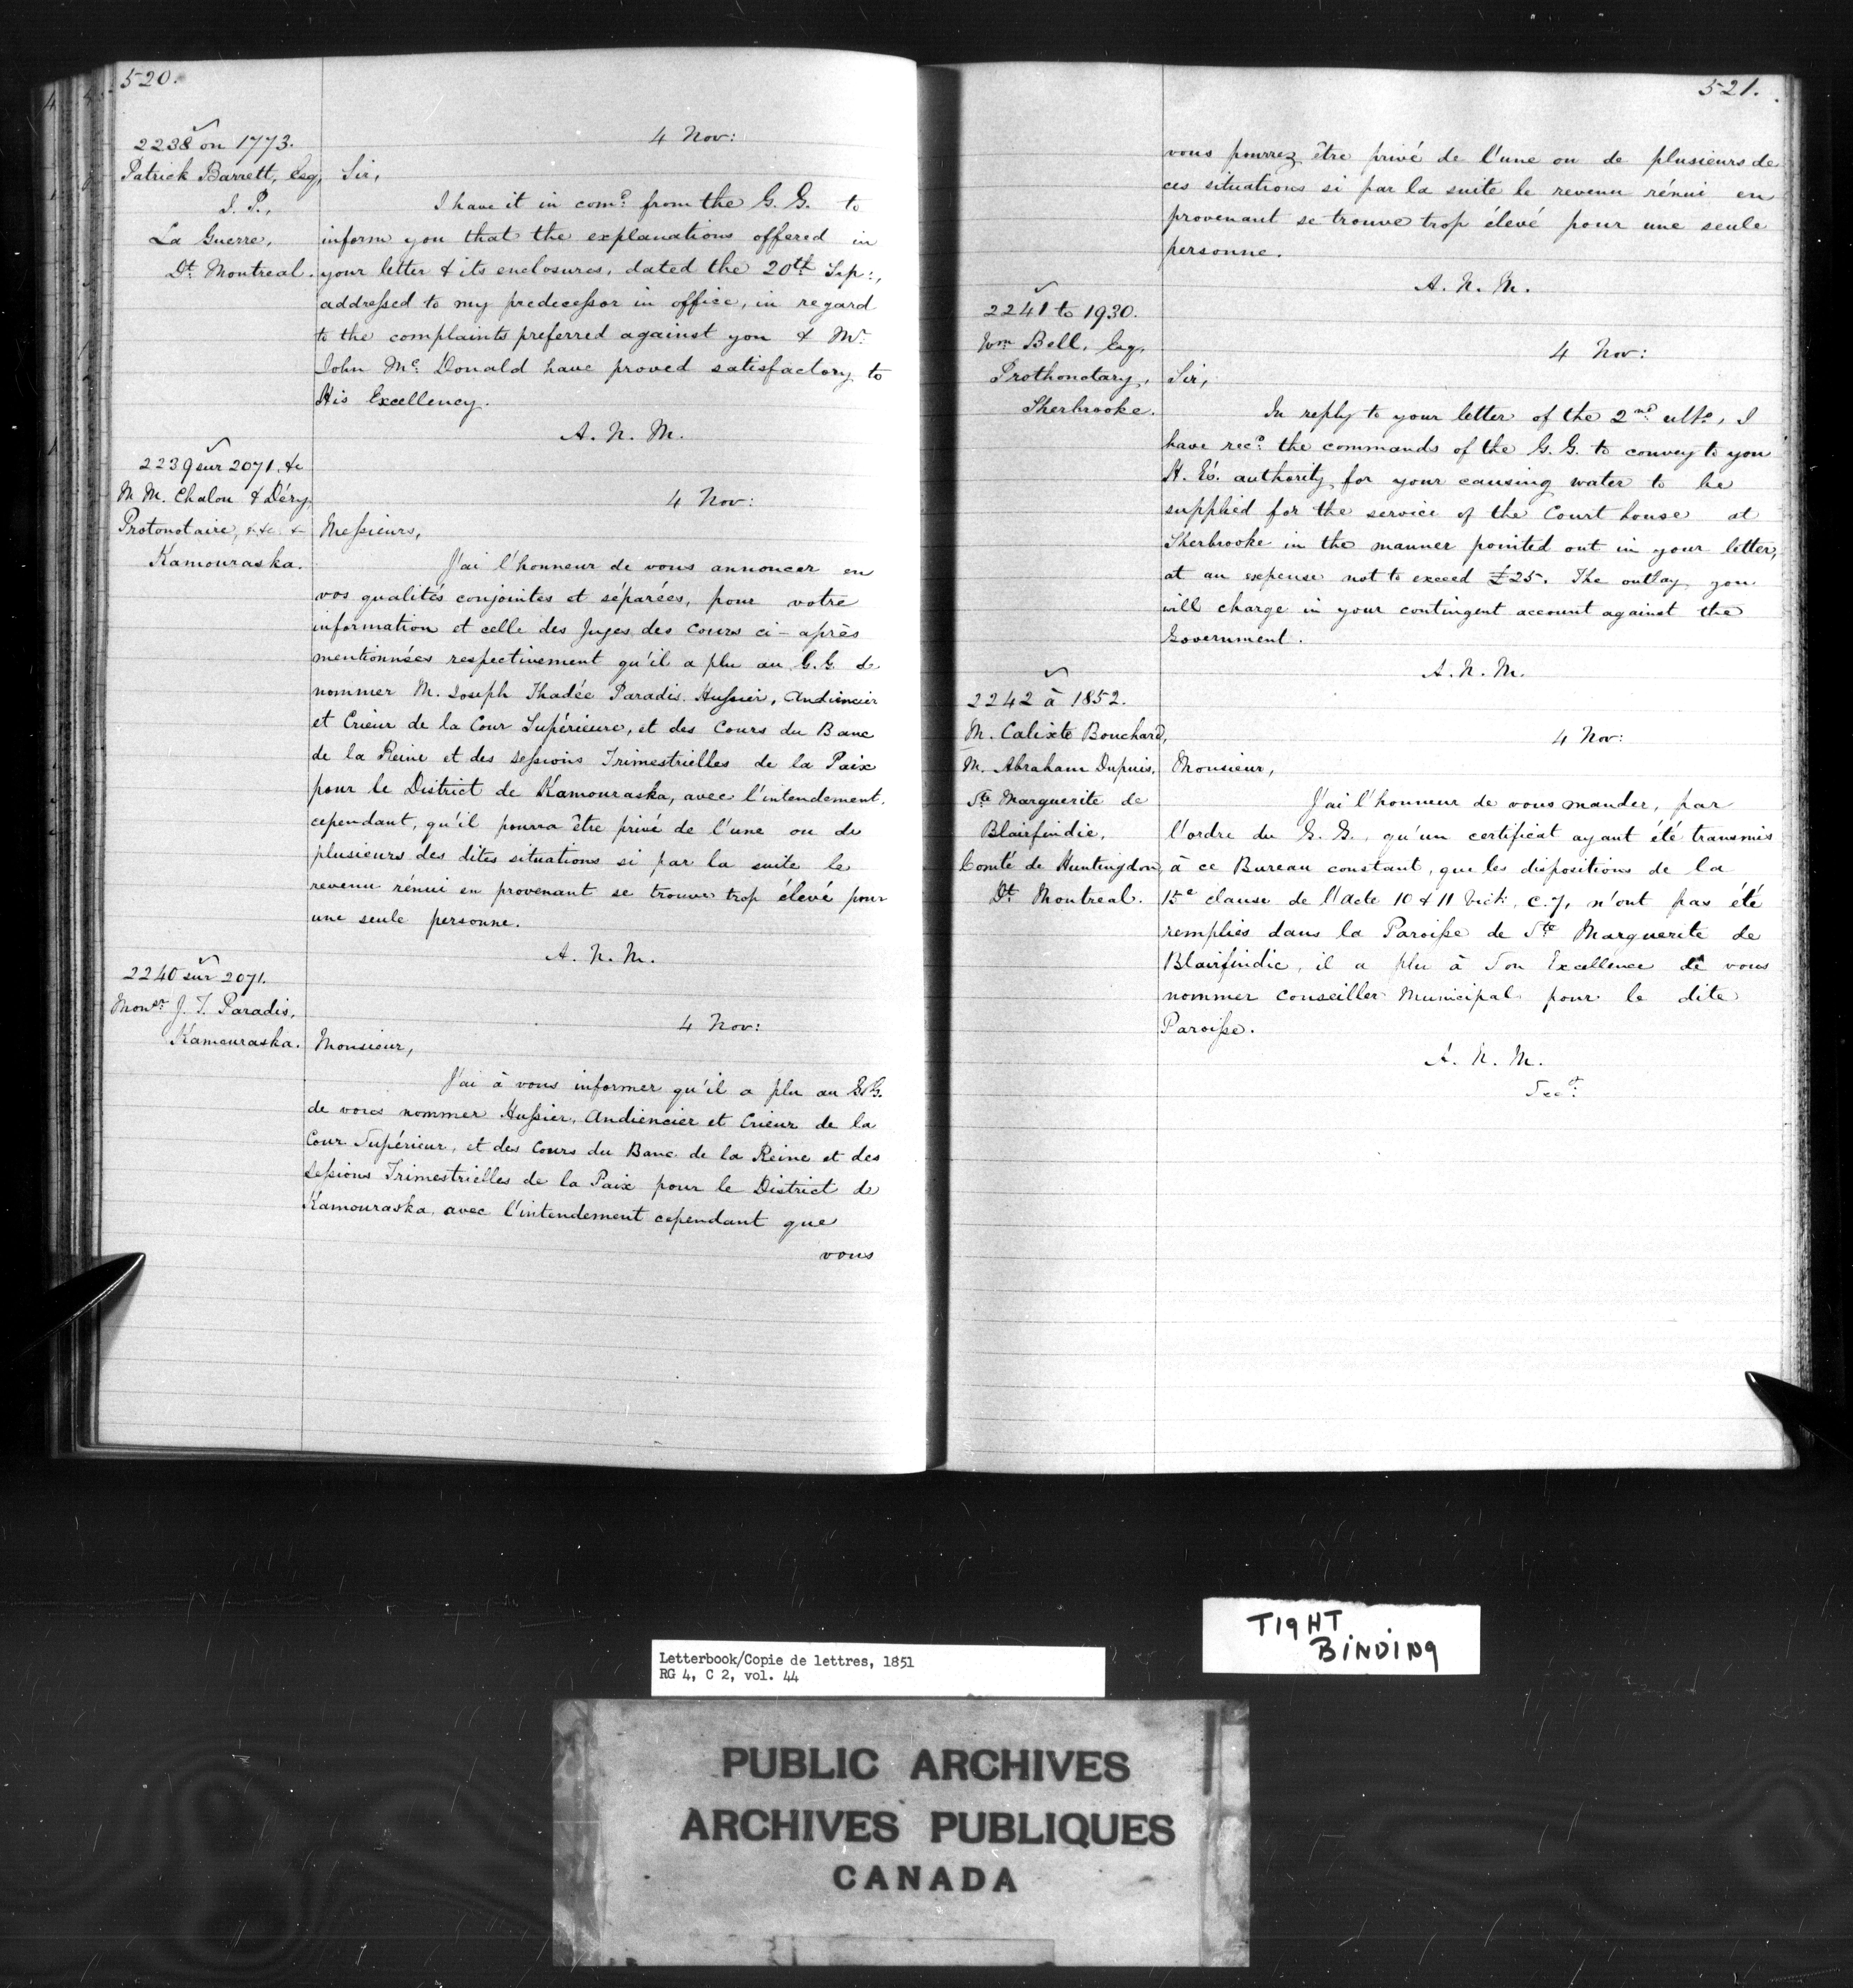 520.
2238 on 1773.
Patrick Barrett, Esq,
J. P.,
La Guerre,
Dt. Montreal.
4 Nov:
Sir,
I have it in comd. from the G. G. to
inform you that the explanations offered in
your letter & its enclosures, dated the 20th Sep:,
addressed to my predecessor in office, in regard
to the complaints preferred against you & Mr.
John Mc. Donald have proved satisfactory to
His Excellency.
A. N. M.
2239 sur 2071, &c
M M. Chalou & Déry,
Protonotaire, &c &
Kamouraska.
4 Nov:
Messieurs,
J'ai l'honneur de vous annoncer en
vos qualités conjointes et séparées, pour votre
information et celle des Juges des Cours ci-après
mentionnées respectivement qu'il a plu au G. G. de
nommer M. Joseph Thadée Paradis. Hussier, Audiencier
et Crieur de la Cour Supérieure, et des Cours du Banc
de la Reine et des Sessions Trimestrielles de la Paix
pour le District de Kamouraska, avec l'intendement,
cependant, qu'il pourra être privé de l'une ou de
plusieurs des dites situations si par la suite le
revenu rénui en provenant se trouve trop élevé pour
une seule personne.
A. N. M.
2240 sur 2071.
Monsr. J. T. Paradis,
Kamouraska.
4 Nov:
Monsieur,
J'ai à vous informer qu'il a plu au G. G.
de vous nommer Hussier, Audiencier et Crieur de la
Cour Supérieur, et des Cours du Banc de la Reine et des
Sessions Trimestrielles de la Paix pour le District de
Kamouraska, avec l'intendement cependant que
vous
521.
vous pourrez être privé de l'une ou de plusieurs de
ces situations si par la suite le revenu rénui en
provenant se trouve trop élevé pour une seule
personne.
A. N. M.
2241 to 1930.
Wm. Bell, Esq.
Prothonotary,
Sherbrooke.
4 Nov:
Sir,
In reply to your letter of the 2nd ulto., I
have recd. the commands of the G. G. to convey to you
H. Es. authority for your causing water to be
supplied for the service of the Court house at
Sherbrooke in the manner pointed out in your letter,
at an expense not to exceed £25. The outlay you
will charge in your contingent account against the
Government.
A. N. M.
2242 à 1852.
M. Calixte Bouchard,
M. Abraham Dupuis,
Ste Marguerite de
Blairfindie,
Comté de Huntingdon,
Dt. Montreal.
4 Nov:
Monsieur,
J'ai l'honneur de vous mander, par
l'ordre du G. G., qu'un certificat ayant été transmis
à ce Bureau constant, que les dispositions de la
15e clause de l'Acte 10 & 11 Vict. c. 7, n'ont pas été
remplies dans la Paroisse de Ste Marguerite de
Blairfindie, il a plu à Son Excellence de vous
nommer Conseiller Municipal pour le dite
Paroisse.
A. N. M.
Secy.
TIGHT
BINDING
Letterbook/Copie de lettres, 1851
RG 4, C 2, vol. 44
PUBLIC ARCHIVES
ARCHIVES PUBLIQUES
CANADA